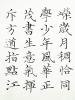 嶸歲月稠恰同
學少年風華正
茂書生意氣揮
斥方遒指點江